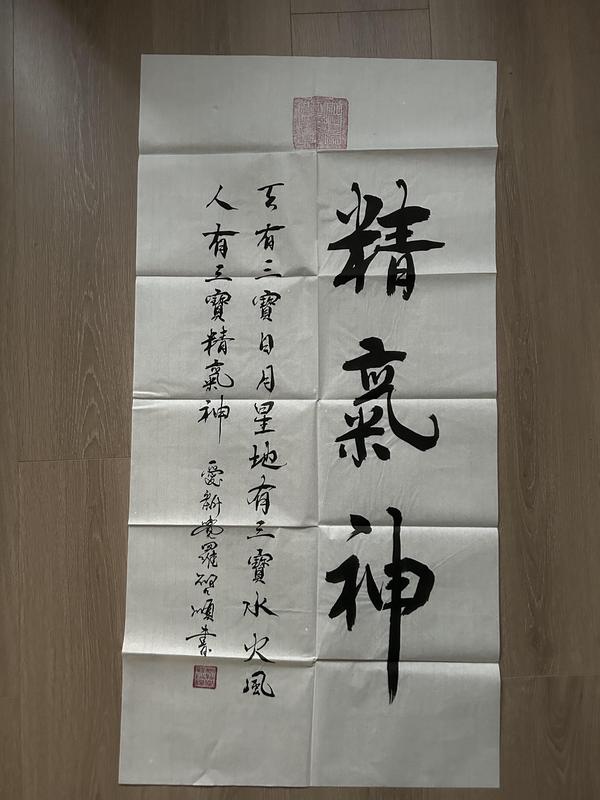 精氣神
天有三寶日月星地有三寶水火風
人有三寶精氣神
愛新覺羅啓順書